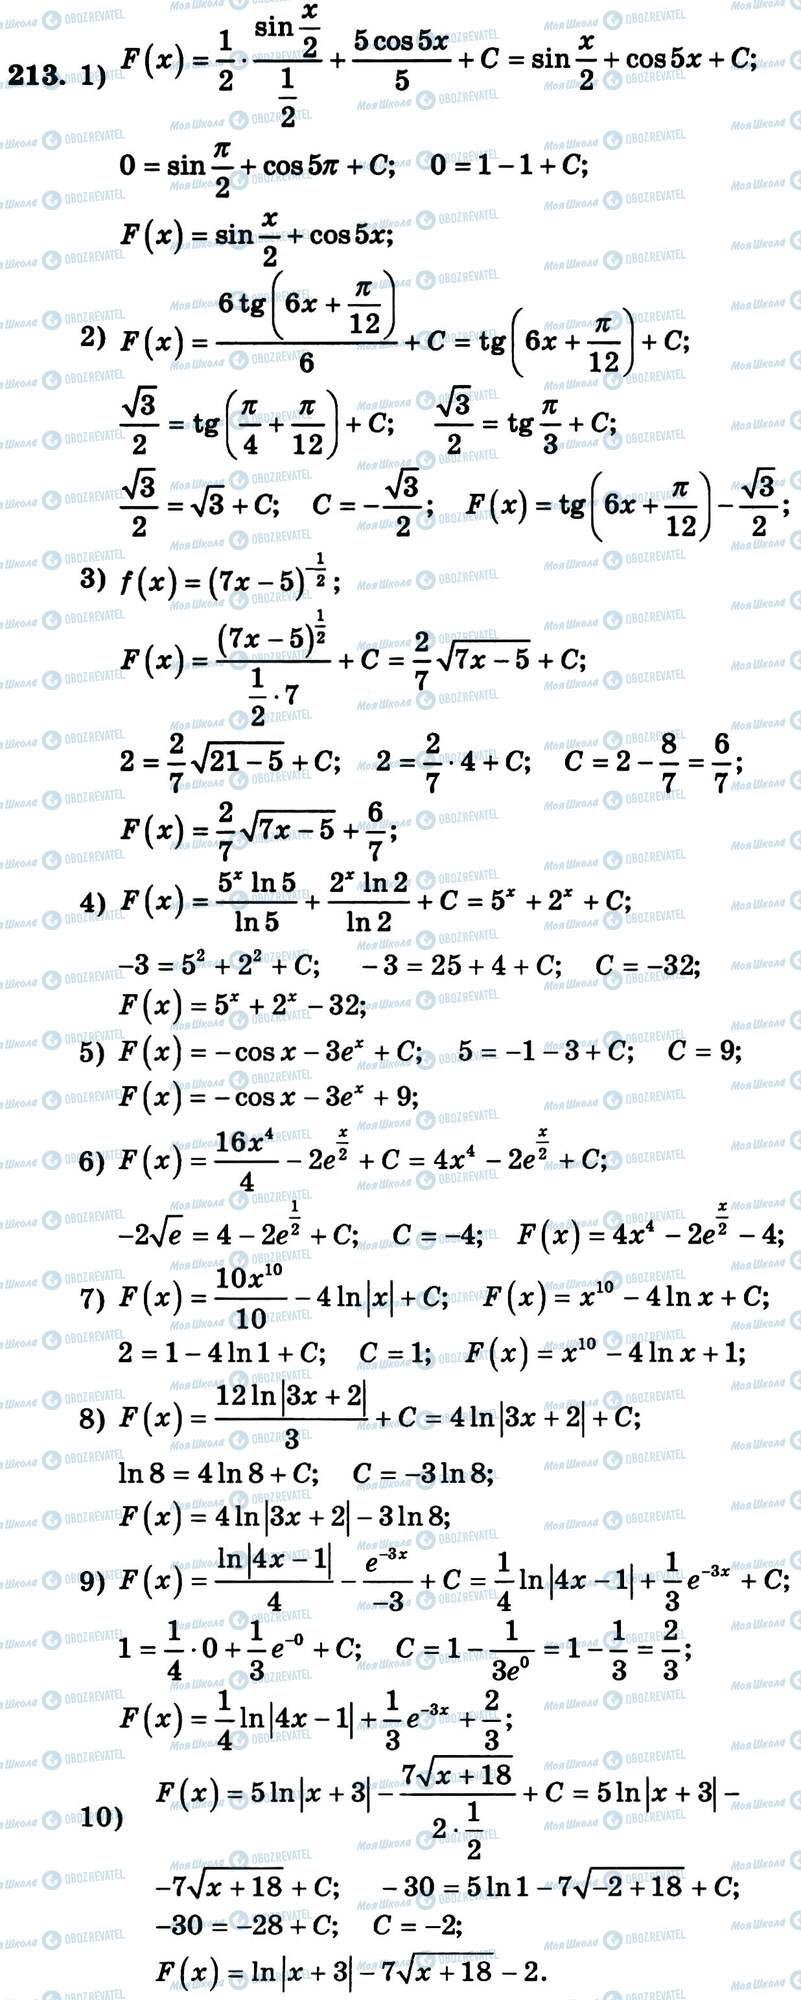 213. 1) F(x) = 1/2 · (sin x/2)/(1/2) + (5 cos 5x)/5 + C = sin x/2 + cos 5x + C;
0 = sin π/2 + cos 5π + C; 0 = 1 − 1 + C;
F(x) = sin x/2 + cos 5x;
2) F(x) = (6 tg(6x + π/12))/6 + C = tg(6x + π/12) + C;
√3/2 = tg(π/4 + π/12) + C; √3/2 = tg π/3 + C;
√3/2 = √3 + C; C = −√3/2; F(x) = tg(6x + π/12) − √3/2;
3) f(x) = (7x − 5)^(−1/2);
F(x) = (7x − 5)^(1/2)/(1/2 · 7) + C = 2/7 √(7x − 5) + C;
2 = 2/7 √(21 − 5) + C; 2 = 2/7 · 4 + C; C = 2 − 8/7 = 6/7;
F(x) = 2/7 √(7x − 5) + 6/7;
4) F(x) = (5^x ln 5)/(ln 5) + (2^x ln 2)/(ln 2) + C = 5^x + 2^x + C;
−3 = 5² + 2² + C; −3 = 25 + 4 + C; C = −32;
F(x) = 5^x + 2^x − 32;
5) F(x) = − cos x − 3e^x + C; 5 = −1 − 3 + C; C = 9;
F(x) = − cos x − 3e^x + 9;
6) F(x) = 16x⁴/4 − 2e^(x/2) + C = 4x⁴ − 2e^(x/2) + C;
−2√e = 4 − 2e^(1/2) + C; C = −4; F(x) = 4x⁴ − 2e^(x/2) − 4;
7) F(x) = 10x¹⁰/10 − 4 ln|x| + C; F(x) = x¹⁰ − 4 ln x + C;
2 = 1 − 4 ln 1 + C; C = 1; F(x) = x¹⁰ − 4 ln x + 1;
8) F(x) = (12 ln|3x + 2|)/3 + C = 4 ln|3x + 2| + C;
ln 8 = 4 ln 8 + C; C = −3 ln 8;
F(x) = 4 ln|3x + 2| − 3 ln 8;
9) F(x) = (ln|4x − 1|)/4 − e^(−3x)/(−3) + C = 1/4 ln|4x − 1| + 1/3 e^(−3x) + C;
1 = 1/4 · 0 + 1/3 e^(−0) + C; C = 1 − 1/(3e⁰) = 1 − 1/3 = 2/3;
F(x) = 1/4 ln|4x − 1| + 1/3 e^(−3x) + 2/3;
10) F(x) = 5 ln|x + 3| − (7√(x + 18))/(2 · 1/2) + C = 5 ln|x + 3| −
−7√(x + 18) + C; −30 = 5 ln 1 − 7√(−2 + 18) + C;
−30 = −28 + C; C = −2;
F(x) = ln|x + 3| − 7√(x + 18) − 2.